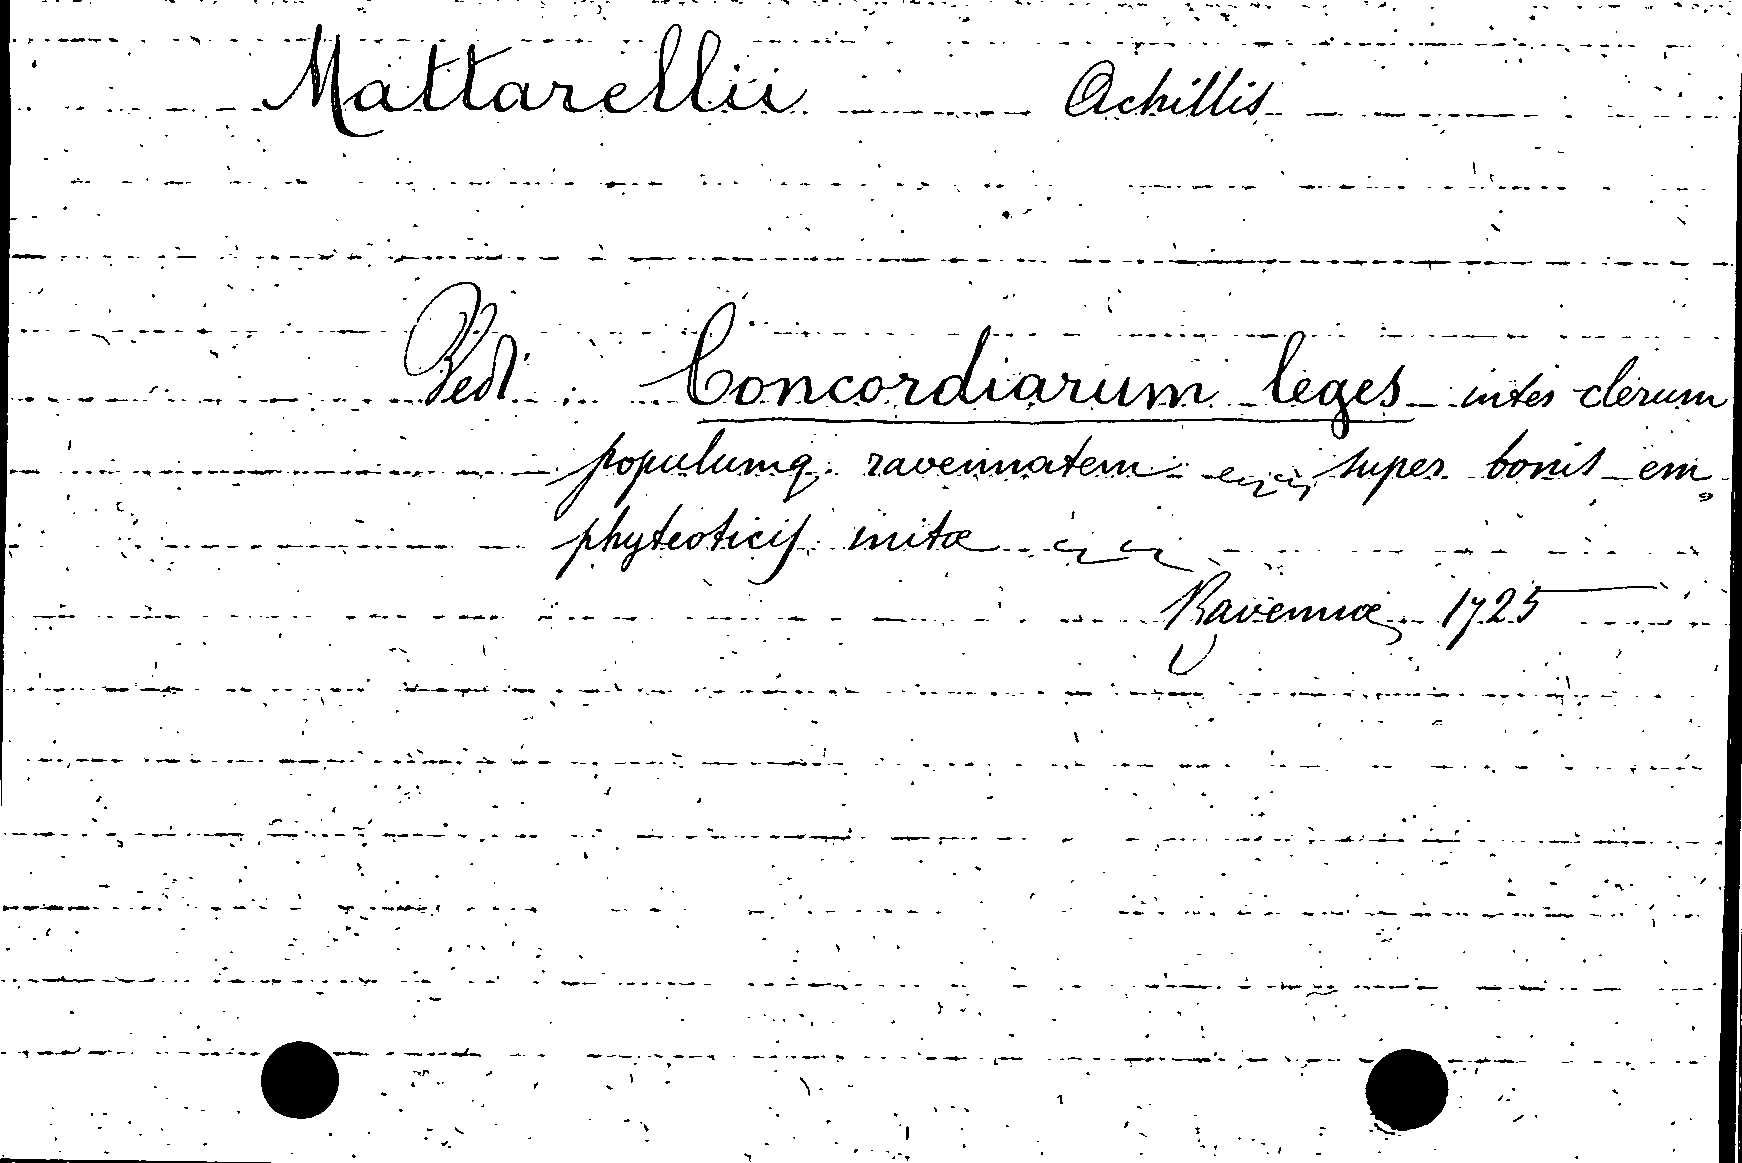 Mattarellii Achillis
Vedi: Concordiarum leges inter clerum
populumq. ravennatem super bonis em=
phyteoticis initæ
Ravennæ, 1725